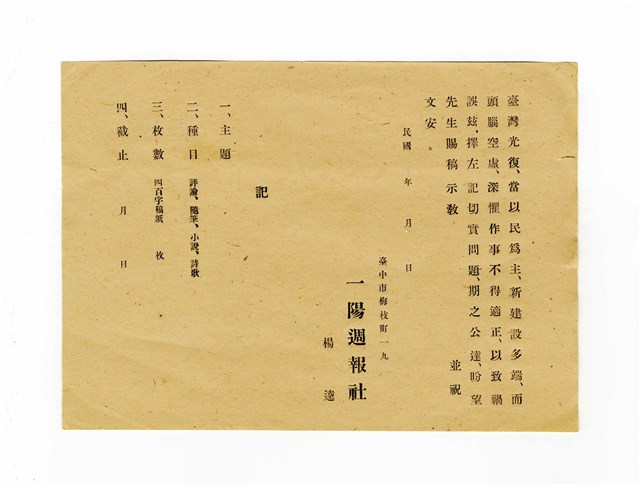 臺灣光復、當以民爲主、新建設多端、而
頭腦空虛、深懼作事不得適正、以致禍
誤茲、擇左記切實問題、期之公達、盼望
先生賜稿示敎　並祝
文安
民國　年　月　日
臺中市梅枝町一九
一陽週報社
楊逵
記
一、主題
二、種目　評論、隨筆、小說、詩歌
三、枚數　四百字稿紙　枚
四、截止　月　日